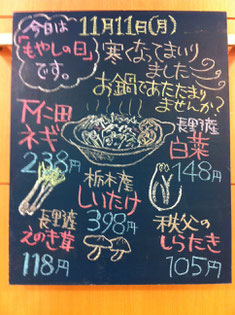 今日は
「もやしの日」
です。
11月11日(月)
寒くなってまいり
ましたー
お鍋であたたまり
ませんか?
下仁田
ネギ
238円
長野産
白菜
148円
栃木産
しいたけ
398円
長野産
えのき茸
118円
秩父の
しらたき
105円